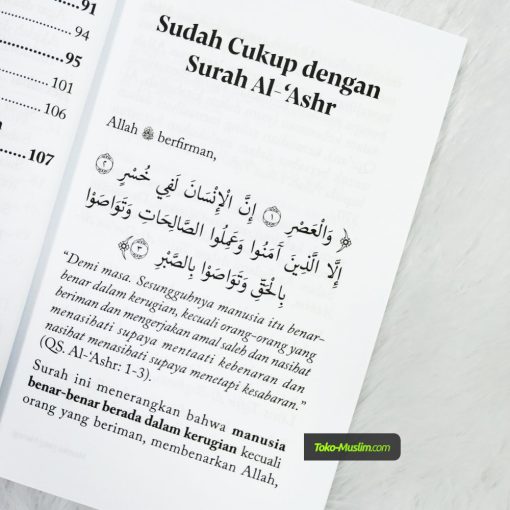 91
94
95
101
106
107
Sudah Cukup dengan
Surah Al-‘Ashr
Allah ﷻ berfirman,
﴿ وَالْعَصْرِ ١ إِنَّ الْإِنْسَانَ لَفِي خُسْرٍ ٢
إِلَّا الَّذِينَ آمَنُوا وَعَمِلُوا الصَّالِحَاتِ وَتَوَاصَوْا
بِالْحَقِّ وَتَوَاصَوْا بِالصَّبْرِ ٣ ﴾
“Demi masa. Sesungguhnya manusia itu benar-
benar dalam kerugian, kecuali orang-orang yang
beriman dan mengerjakan amal saleh dan nasihat
menasihati supaya mentaati kebenaran dan
nasihat menasihati supaya menetapi kesabaran.”
(QS. Al-‘Ashr: 1-3).
Surah ini menerangkan bahwa manusia
benar-benar berada dalam kerugian kecuali
orang yang beriman, membenarkan Allah,
Toko-Muslim.com